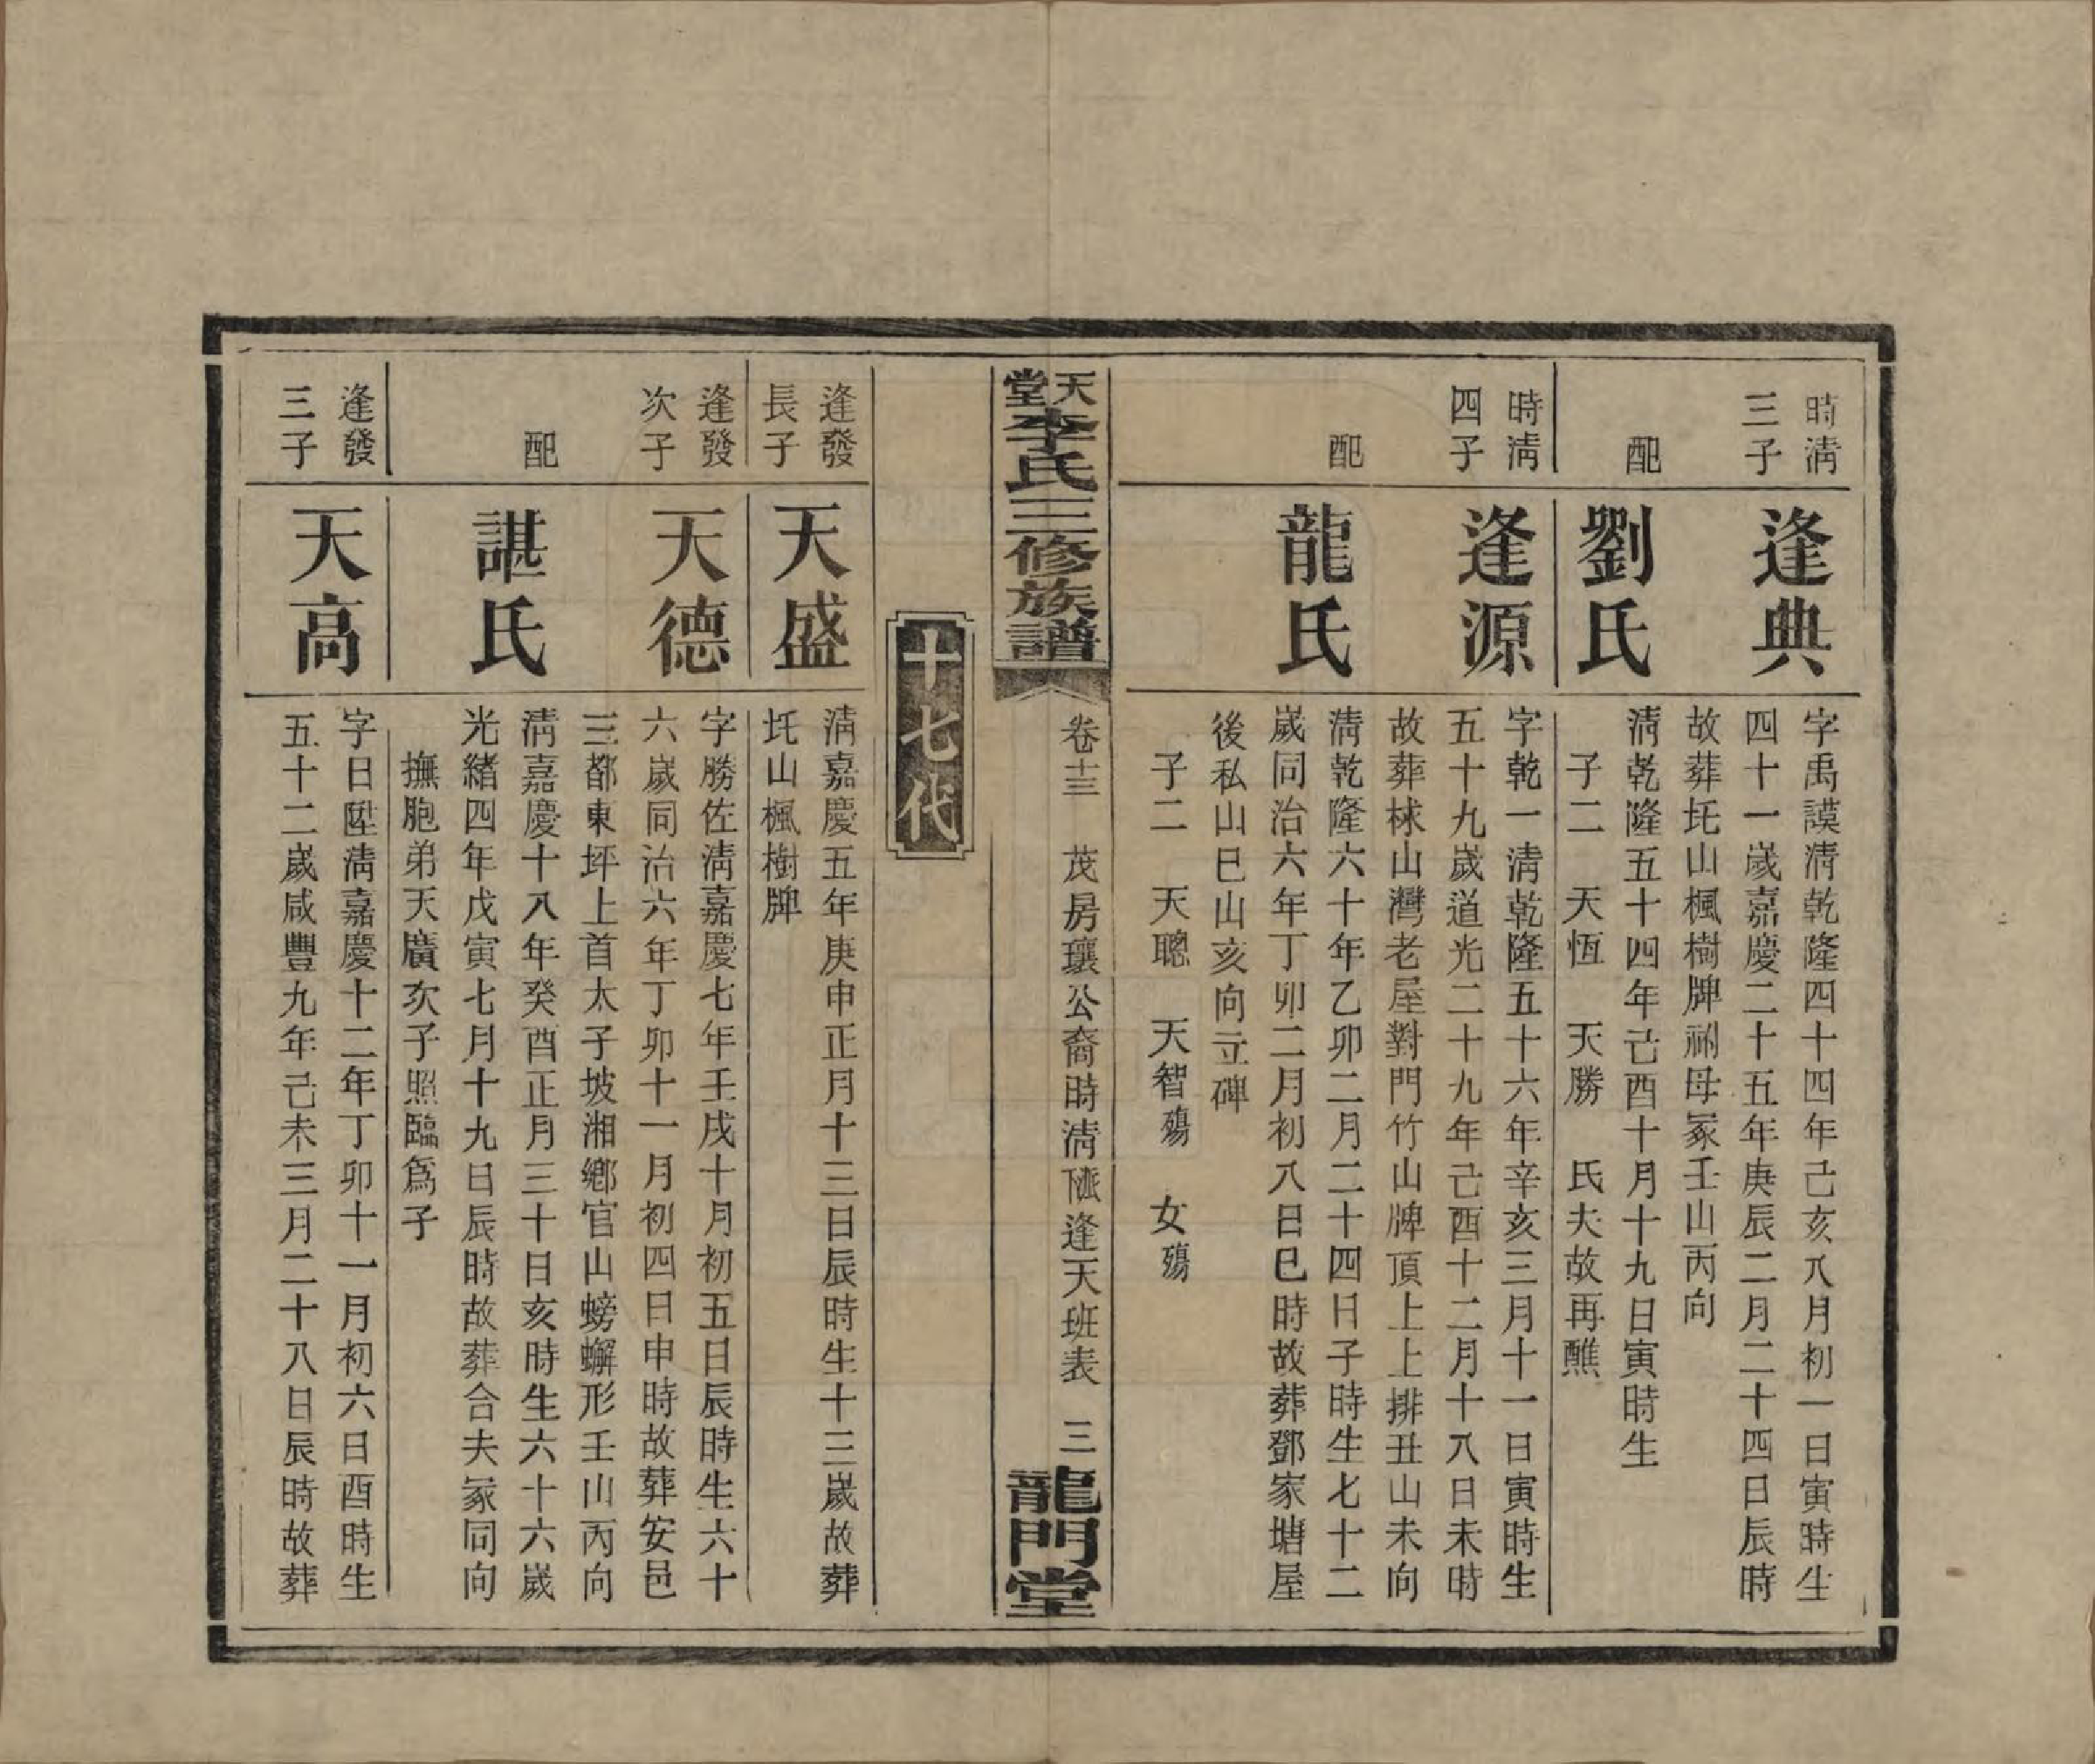 時清
三子
逢典
字禹謨清乾隆四十四年己亥八月初一日寅時生
四十一歲嘉慶二十五年庚辰二月二十四日辰時
故葬圫山楓樹牌祔母冢壬山丙向
配
劉氏
清乾隆五十四年己酉十月十九日寅時生
子二　天恆　天勝　氏夫故再醮
時清
四子
逢源
字乾一清乾隆五十六年辛亥三月十一日寅時生
五十九歲道光二十九年己酉十二月十八日未時
故葬梂山灣老屋對門竹山牌頂上上排丑山未向
配
龍氏
清乾隆六十年乙卯二月二十四日子時生七十二
歲同治六年丁卯二月初八日巳時故葬鄧家塘屋
後私山巳山亥向立碑
子二　天聰　天智殤　女殤
天堂李氏三修族譜
卷十三　茂房瓖公裔時清𠂢逢天班表　三
龍門堂
十七代
逢發
長子
天盛
清嘉慶五年庚申正月十三日辰時生十三歲故葬
圫山楓樹牌
逢發
次子
天德
字勝佐清嘉慶七年壬戌十月初五日辰時生六十
六歲同治六年丁卯十一月初四日申時故葬安邑
三都東坪上首太子坡湘鄉官山螃蠏形壬山丙向
配
諶氏
清嘉慶十八年癸酉正月三十日亥時生六十六歲
光緒四年戊寅七月十九日辰時故葬合夫冢同向
撫胞弟天廣次子照臨爲子
逢發
三子
天高
字日陞清嘉慶十二年丁卯十一月初六日酉時生
五十二歲咸豐九年己未三月二十八日辰時故葬